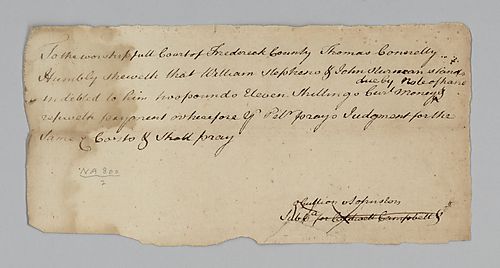 To the worshipfull Court of Frederick County Thomas Connelly
Humbly sheweth that William Stephens & John stands
due by Note of hand
indebted to him two pounds Eleven Shillings Curt. Money &
refuseth payment wherefore yr Petr. prays Judgment for the
Same & Costs & Shall pray
NA 800
7
Johnston
Sub for Campbell